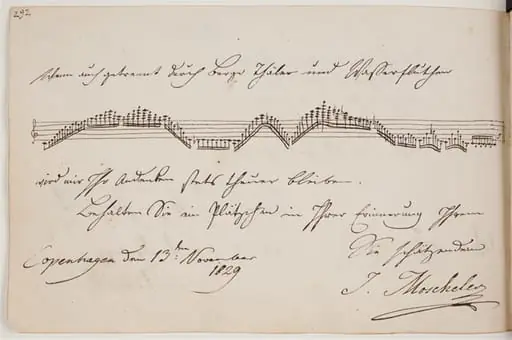 292
Wenn auch getrennt durch Berge Thäler und Wasserfluthen
wird mir Ihr Andenken stets theuer bleiben.
Behalten Sie ein Plätzchen in Ihrer Erinnerung Ihrem
Sie schätzenden
Copenhagen den 13ten November
1829
I. Moscheles